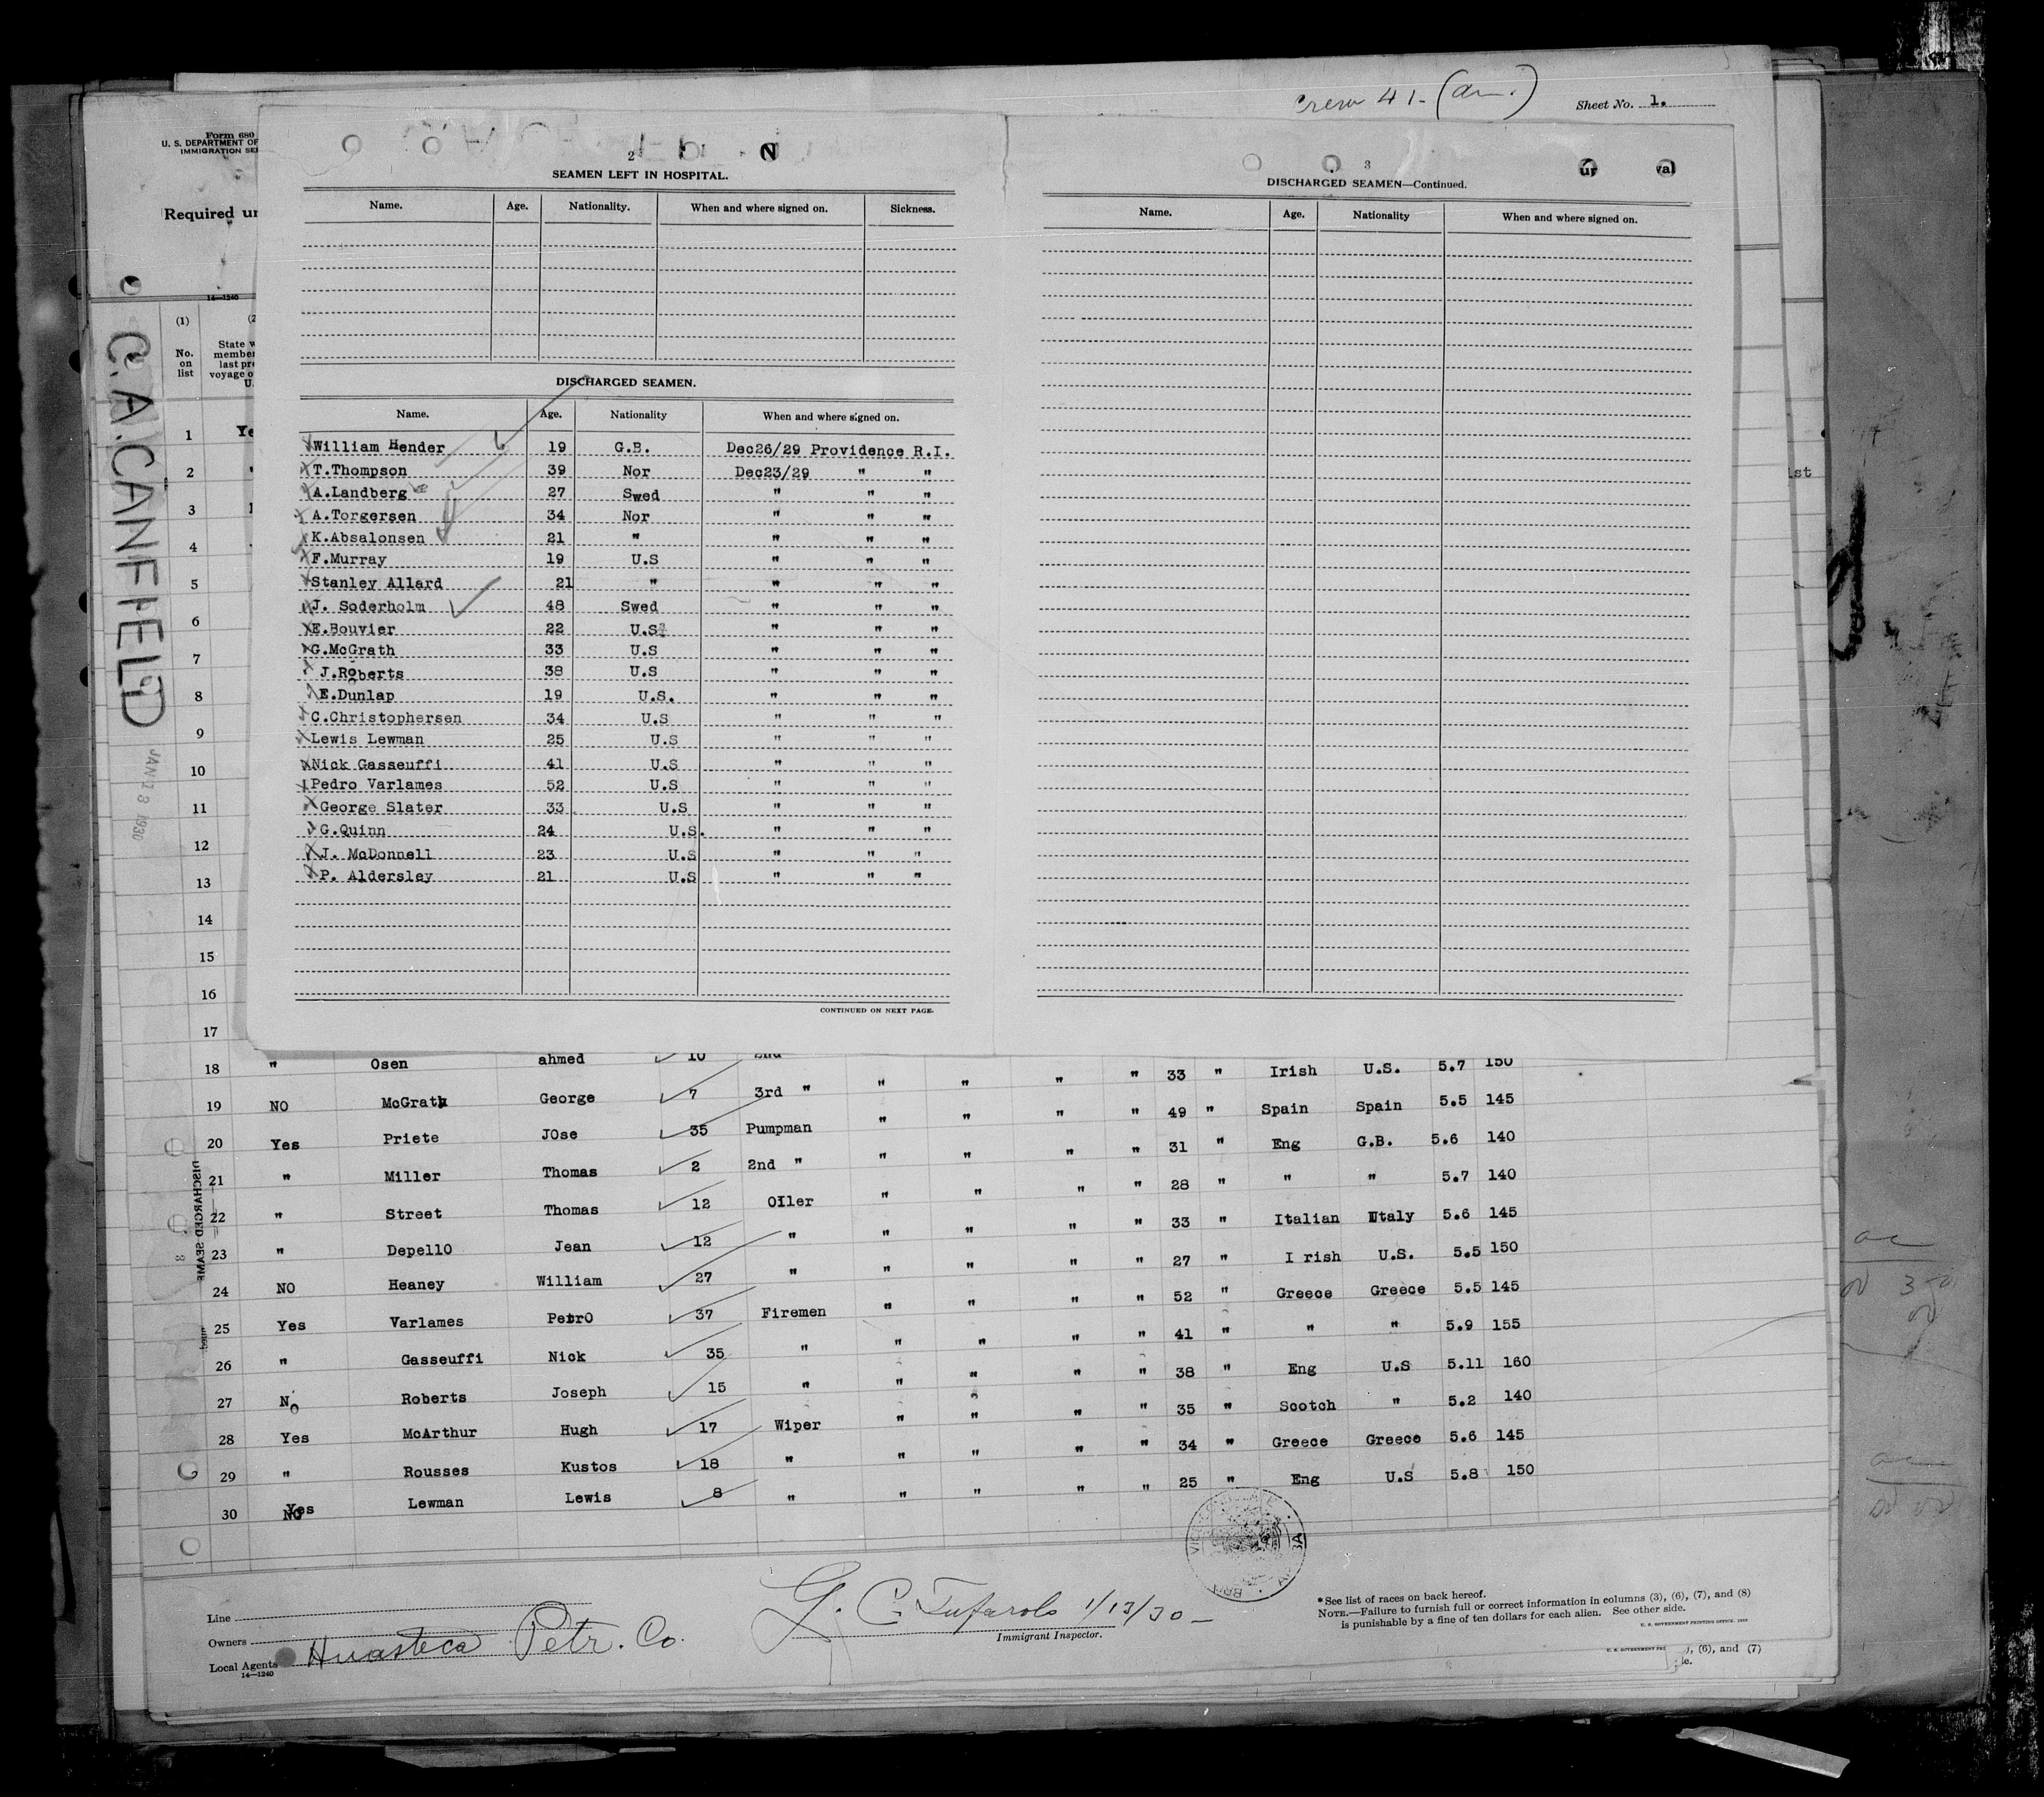 Crew 41-
Sheet No. 1.
Form 680
U. S. DEPARTMENT OF
IMMIGRATION SE
Required un
14—1240
(1)
No.
on
list
State w
member
last pre
voyage o
U.
C.A.CANFIELD
JAN 13 1930
2
SEAMEN LEFT IN HOSPITAL.
Name. Age. Nationality. When and where signed on. Sickness.
DISCHARGED SEAMEN.
Name. Age. Nationality When and where signed on.
William Hender 19 G.B. Dec26/29 Providence R.I.
T.Thompson 39 Nor Dec23/29 " "
A.Landberg 27 Swed " " "
A.Torgersen 34 Nor " " "
K.Absalonsen 21 " " " "
F.Murray 19 U.S " " "
Stanley Allard 21 " " " "
J. Soderholm 48 Swed " " "
E.Bouvier 22 U.S " " "
G.McGrath 33 U.S " " "
J.Roberts 38 U.S " " "
E.Dunlap 19 U.S. " " "
C.Christophersen 34 U.S " " "
Lewis Lewman 25 U.S " " "
Nick Gasseuffi 41 U.S " " "
Pedro Varlames 52 U.S " " "
George Slater 33 U.S " " "
G.Quinn 24 U.S. " " "
J. McDonnell 23 U.S " " "
P. Aldersley 21 U.S " " "
CONTINUED ON NEXT PAGE.
3
DISCHARGED SEAMEN—Continued.
Name. Age. Nationality When and where signed on.
1 Ye
2 "
3
4
5
6
7
8
9
10
11
12
13
14
15
16
17
18 " Osen ahmed 10 2nd
19 NO McGrath George 7 3rd " " " " " 33 " Irish U.S. 5.7 150
20 Yes Priete JOse 35 Pumpman " " " " 49 " Spain Spain 5.5 145
21 " Miller Thomas 2 2nd " " " " " 31 " Eng G.B. 5.6 140
22 " Street Thomas 12 OIler " " " " 28 " " " 5.7 140
23 " DepellO Jean 12 " " " " " 33 " Italian Italy 5.6 145
24 NO Heaney William 27 " " " " " 27 " I rish U.S. 5.5 150
25 Yes Varlames PetrO 37 Firemen " " " " 52 " Greece Greece 5.5 145
26 " Gasseuffi Nick 35 " " " " " 41 " " " 5.9 155
27 No Roberts Joseph 15 " " " " " 38 " Eng U.S 5.11 160
28 Yes McArthur Hugh 17 Wiper " " " " 35 " Scotch " 5.2 140
29 " Rousses Kustos 18 " " " " " 34 " Greece Greece 5.6 145
30 Yes NO Lewman Lewis 8 " " " " " 25 " Eng U.S 5.8 150
Line
Owners
Local Agents Huasteca Petr. Co.
14—1240
1/13/30
Immigrant Inspector.
*See list of races on back hereof.
NOTE.—Failure to furnish full or correct information in columns (3), (6), (7), and (8)
is punishable by a fine of ten dollars for each alien. See other side.
U. S. GOVERNMENT PRINTING OFFICE
U. S. GOVERNMENT PRI
), (6), and (7)
le.